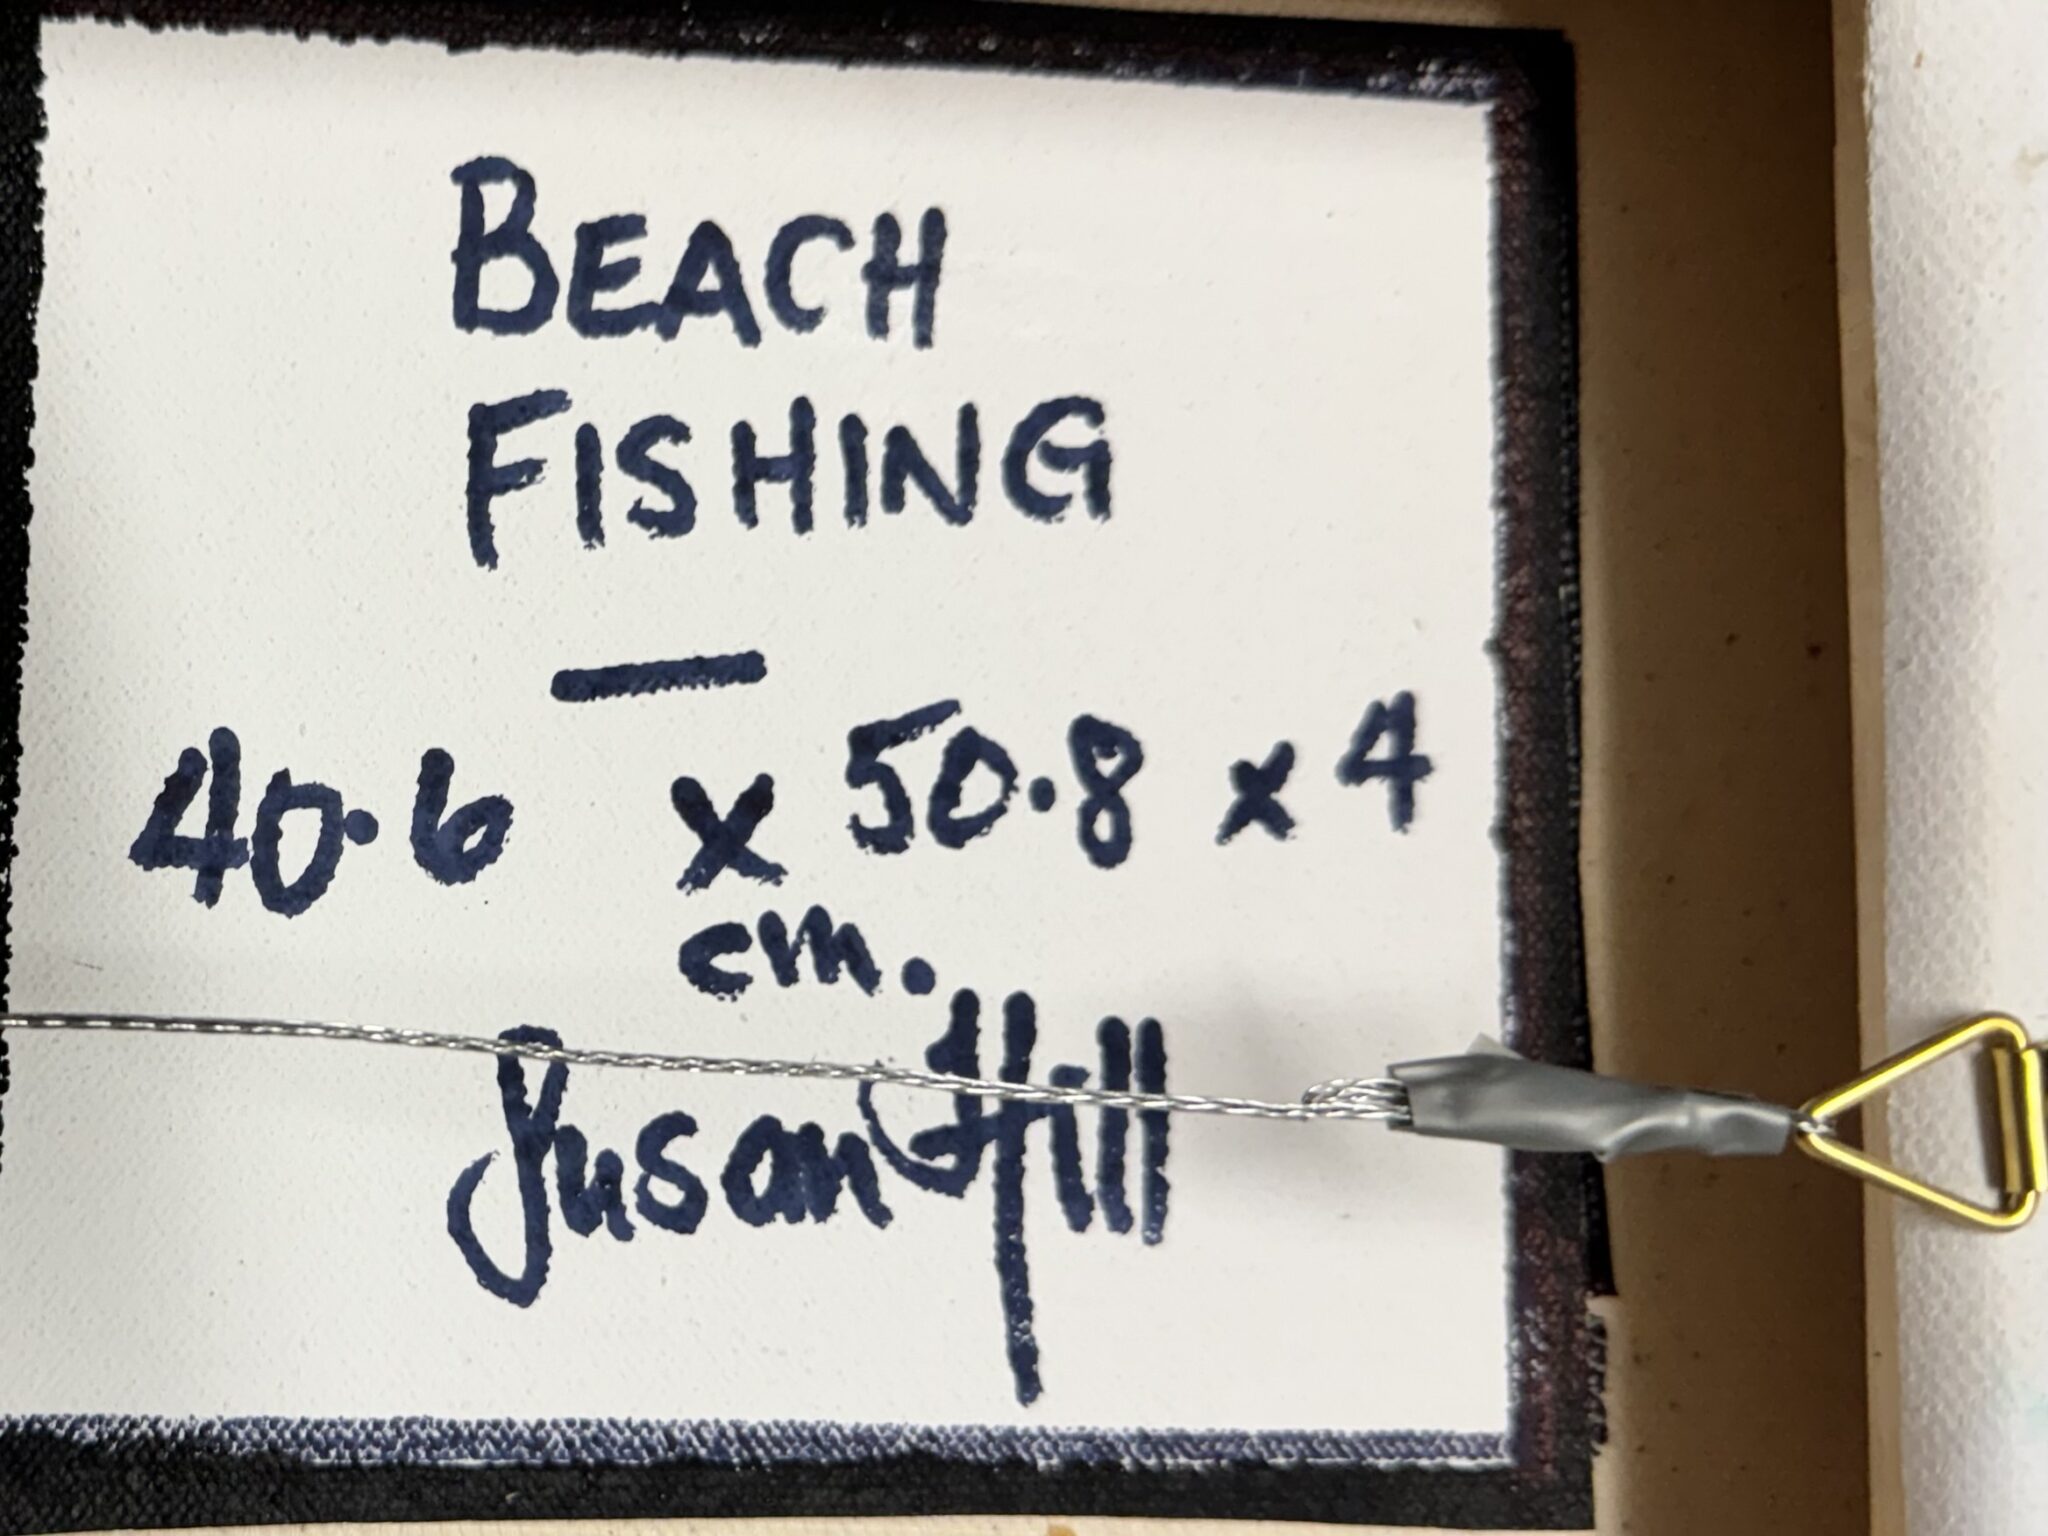 BEACH
FISHING
—
40.6 x 50.8 x 4
cm.
Susan Hill